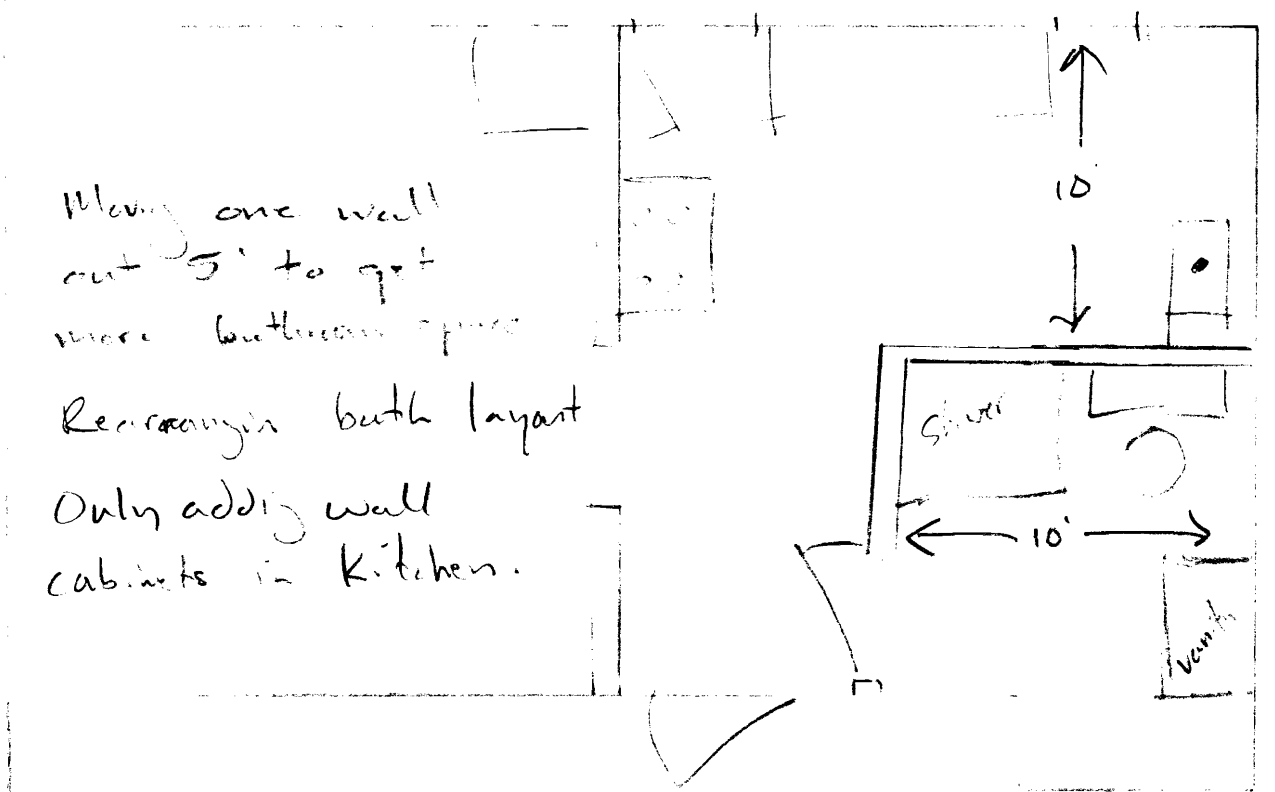 Moving one wall
out 5' to get
more bathroom space
Rearrangin bath layout
Only addig wall
cabinets in Kitchen.
10'
Shower
10'
Vanity